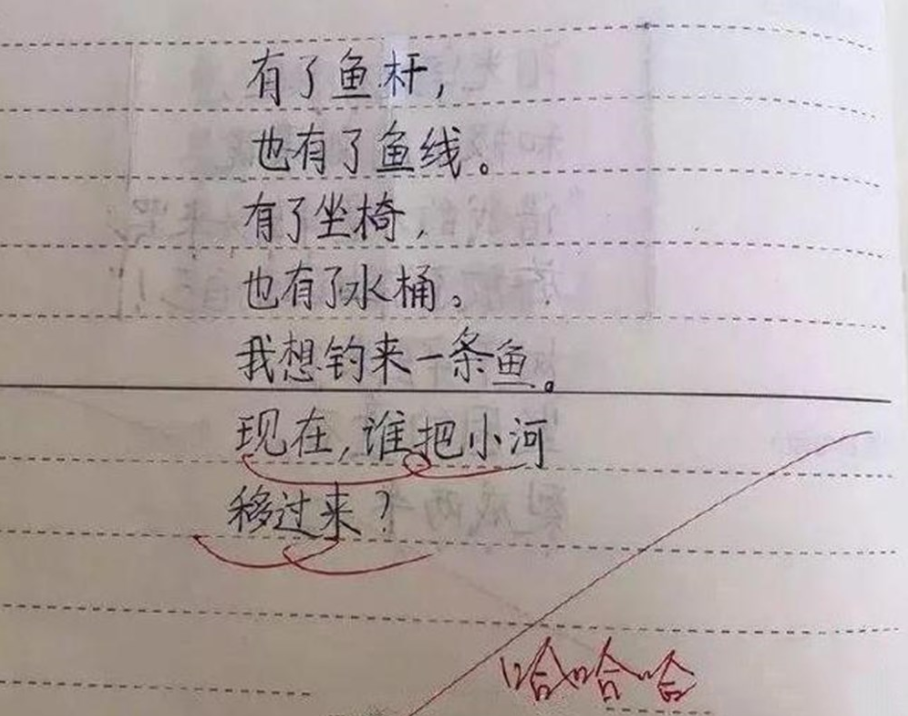 有了鱼杆，
也有了鱼线。
有了坐椅，
也有了水桶。
我想钓来一条鱼。
现在，谁把小河
移过来？
哈哈哈